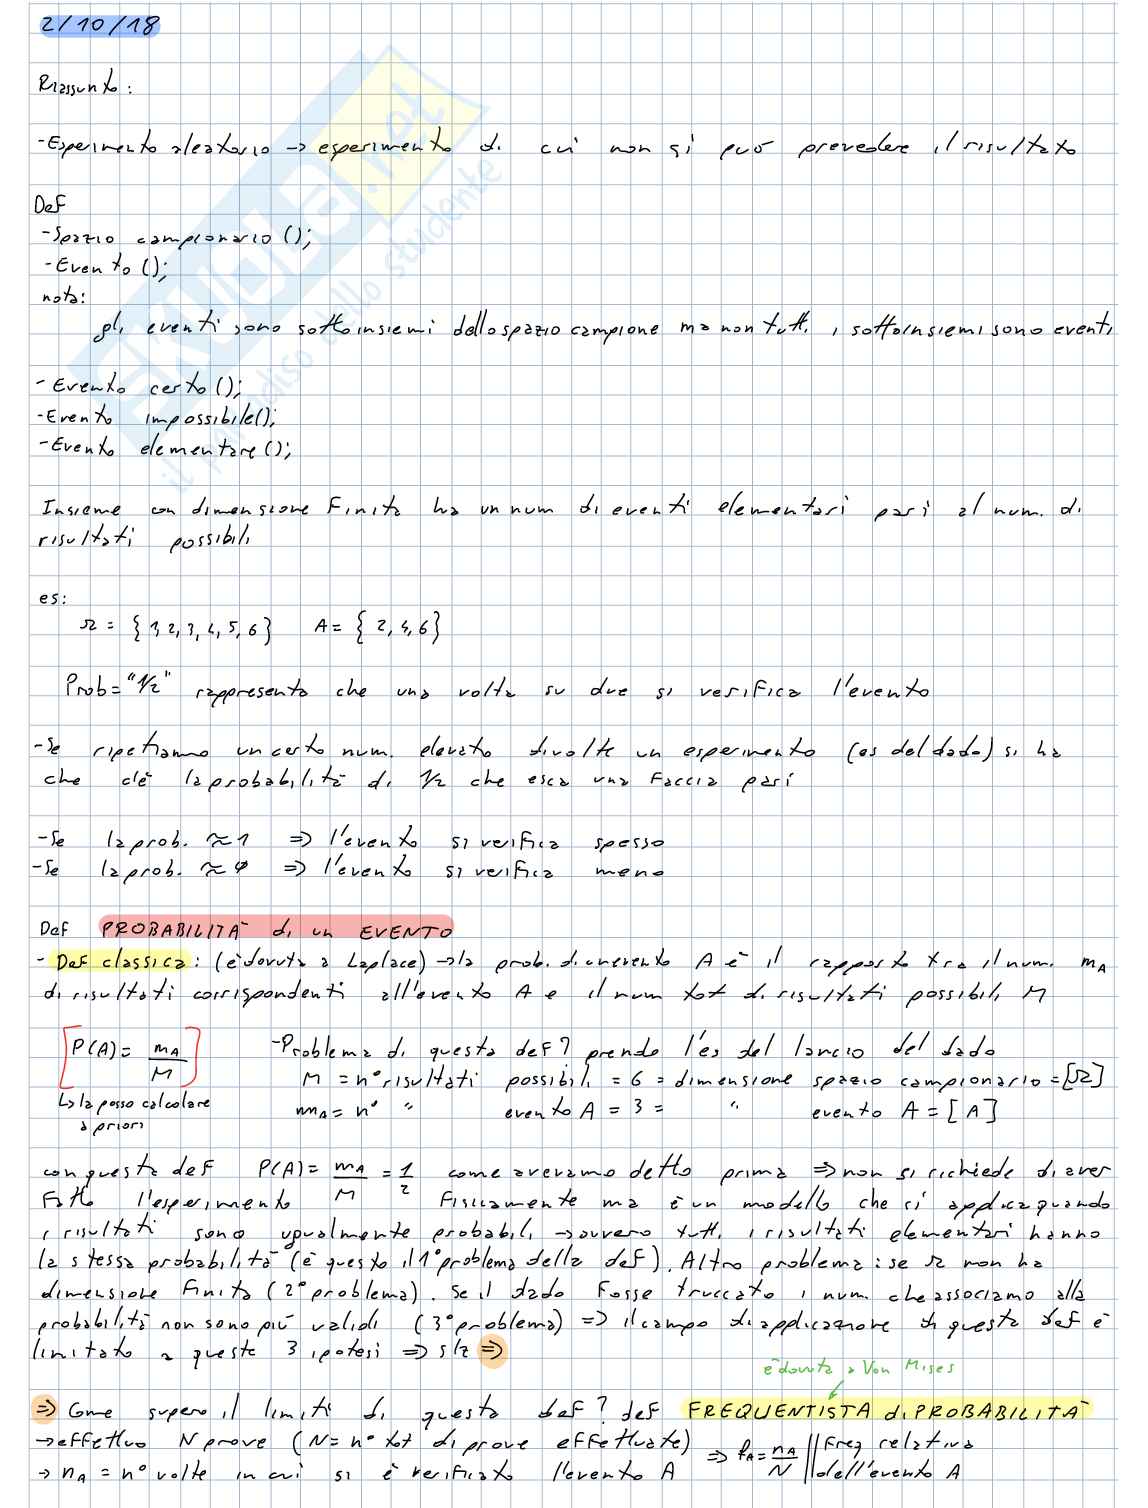 2/10/18
Riassunto:
-Esperimento aleatorio -> esperimento di cui non si può prevedere il risultato
Def
-Spazio campionario ();
-Evento ();
nota:
gli eventi sono sottoinsiemi dello spazio campione ma non tutti i sottoinsiemi sono eventi
-Evento certo ();
-Evento impossibile();
-Evento elementare ();
Insieme con dimensione finita ha un num di eventi elementari pari al num. di
risultati possibili
es:
Ω = {1,2,3,4,5,6} A = {2,4,6}
Prob="1/2" rappresenta che una volta su due si verifica l'evento
-Se ripetiamo un certo num. elevato di volte un esperimento (es del dado) si ha
che c'è la probabilità di 1/2 che esca una faccia pari
-Se la prob. ≈ 1 => l'evento si verifica spesso
-Se la prob. ≈ φ => l'evento si verifica meno
Def PROBABILITÀ di un EVENTO
- Def classica: (è dovuta a Laplace) -> la prob. di un evento A è il rapporto tra il num. mA
di risultati corrispondenti all'evento A e il num tot di risultati possibili M
[P(A) = mA/M] -Problema di questa def? prendo l'es del lancio del dado
M = n° risultati possibili = 6 = dimensione spazio campionario = [Ω]
↳ la posso calcolare a priori
mA = n° " evento A = 3 = " evento A = [A]
con questa def P(A) = mA/M = 1/2 come avevamo detto prima => non si richiede di aver
fatto l'esperimento fisicamente ma è un modello che si applica quando
i risultati sono ugualmente probabili -> ovvero tutti i risultati elementari hanno
la stessa probabilità (è questo il 1° problema della def). Altro problema: se Ω non ha
dimensione finita (2° problema). Se il dado fosse truccato i num. che associamo alla
probabilità non sono più validi (3° problema) => il campo di applicazione di questa def è
limitato a queste 3 ipotesi => slz =>
è dovuta a Von Mises
=> Come supero il limiti di questa def? def FREQUENTISTA di PROBABILITÀ
-> effettuo N prove (N = n° tot di prove effettuate) => fA = nA/N || Freq relativa
-> nA = n° volte in cui si è verificato l'evento A || dell'evento A
SKUOLA.net
il paradiso dello studente